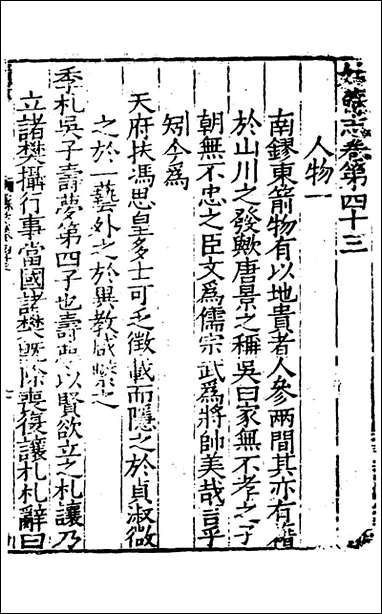 姑蘇志卷第四十三
人物一
南鏐東箭物有以地貴者人參两間其亦有
於山川之發歟唐景之稱吳曰家無不孝之子
朝無不忠之臣文爲儒宗武爲將帥美哉言乎
矧今爲
天府扶馮思皇多士可乏徵載而隱之於貞淑微
之於一藝外之於異教咸繫之
季札吳子壽夢第四子也壽夢以賢欲立之札讓乃
立諸樊攝行事當國諸樊旣除喪復讓札札辭曰